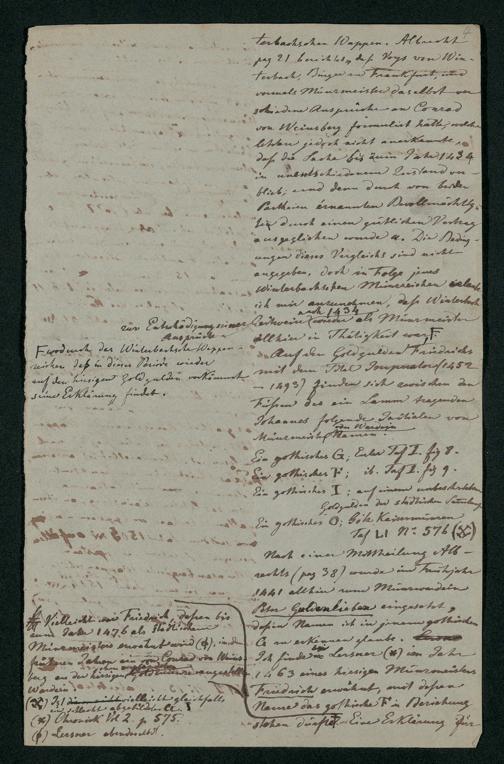 4
terbachschen Wappen. Albrecht
pag 21 berichtet, daß Voys von Win-
terbach, Bürger in Frankfurt, und
vormals Münzmeister daselbst ver-
schiedene Ansprüche an Conrad
von Weinsberg formulirt hatte, welche
letzterer jedoch nicht anerkannte,
daß die Sache bis zum Jahr 1434
in unentschiedenem Zustand ver-
blieb, und dann durch von beiden
Partheien ernannten Bevollmächtig-
ten durch einen gütlichen Vertrag
ausgeglichen wurde. Die Beding-
ungen dieses Vergleichs sind nicht
angegeben, doch in Folge jenes
Winterbachschen Münzzeichen
ich mir anzunehmen, daß Winterbach
nach 1434
wieder als Münzmeister
allhier in Thätigkeit war, F
zur Entschädigung seiner
Ansprüche
F wodurch das Winterbachsche Wappen-
zeichen daß in dieser Periode wieder
auf den hiesigen Goldgulden vorkömmt
seine Erklärung findet.
Auf den Goldgulden Friedrichs
mit dem Titel Imperator (1452
– 1493) finden sich zwischen den
Füßen des ein Lamm tragenden
Johannes folgende Initialen von
oder Wardein
Münzmeister Namen.
Ein gothisches G; Euler Taf I. fig 8.
Ein gothisches F; ib. Taf I. fig 9.
Ein gothisches I; auf einem unbeschriebenen
Goldgulden der städtischen Sammlung
Ein gothisches O; Götz Kaisermünzen
Taf LI No 576 (X)
Nach einer Mittheilung Alb-
rechts (pag 38) wurde im Frühjahr
1441 allhier zum Münzwardein
Peter Guldenlieben eingesetzt,
dessen Namen ich in jenem gothischen
G zu erkennen glaube.
Ich finde bei Lersner (*) im Jahr
1463 eines hiesigen Münzmeisters
Friedrich erwähnt, mit dessen
Name das gothische F in Beziehung
stehen dürfte. Eine Erklärung für
Vielleicht ein Friedrich, dessen bis
zum Jahr 1476 als städtischen
Münzmeisters erwähnt wird (φ), in den
früheren Jahren ein von Conrad von Weins-
berg an der hiesigen angestellter
Wardein
(X) Ist vielleicht gleichfalls
ein schlecht abgebildetes I
(*) Chronick Vol 2. p 575.
(φ) Lersner ebendaselbst.